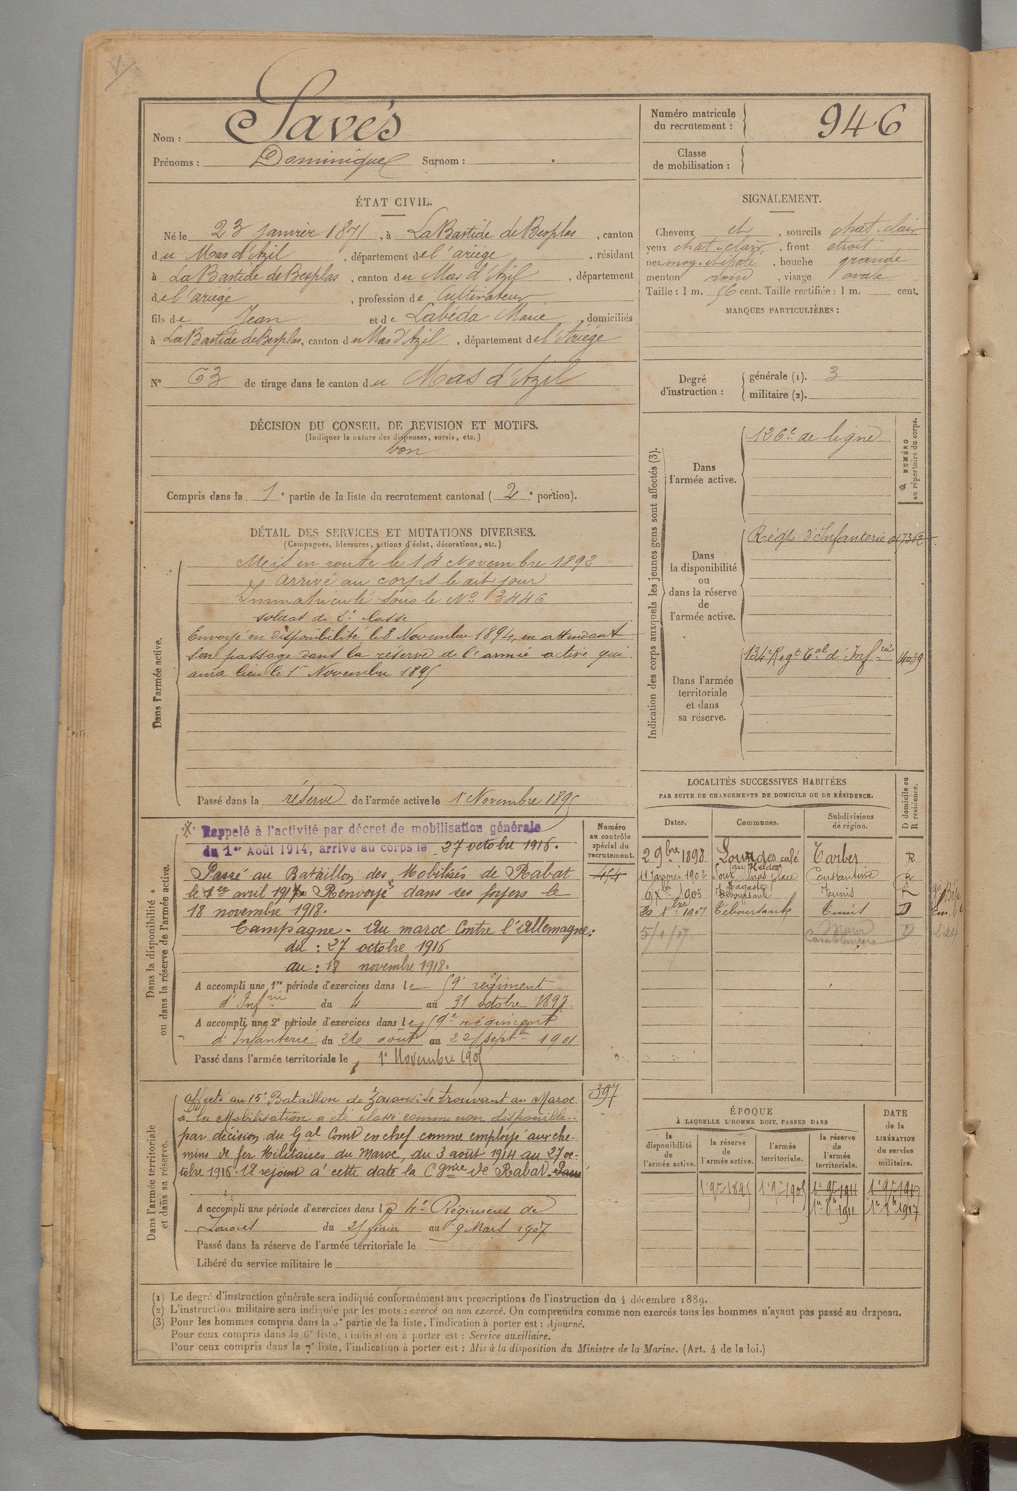 Nom : Savés
Prénoms : Dominique Surnom :
Numéro matricule du recrutement : 946
Classe de mobilisation :
ÉTAT CIVIL.
Né le 23 janvier 1871, à La Bastide de Besplas, canton
du Mas d'Azil, département de l'ariège, résidant
à La Bastide de Besplas, canton du Mas d'Azil, département
de l'ariège, profession de Cultivateur
fils de Jean et de Labéda Marie, domiciliés
à La Bastide de Besplas, canton du Mas d'Azil, département de l'Ariège
N° 63 de tirage dans le canton du Mas d'Azil
SIGNALEMENT.
Cheveux et, sourcils chat-clair
yeux chat-clair, front étroit
nez moy. épaté, bouche grande
menton rond, visage ovale
Taille : 1 m. 56 cent. Taille rectifiée : 1 m. cent.
MARQUES PARTICULIÈRES :
Degré d'instruction : générale (1). 3
militaire (2).
DÉCISION DU CONSEIL DE REVISION ET MOTIFS.
(Indiquer la nature des dispenses, sursis, etc.)
bon
Compris dans la 1e partie de la liste du recrutement cantonal (2e portion).
DÉTAIL DES SERVICES ET MUTATIONS DIVERSES.
(Campagnes, blessures, actions d'éclat, décorations, etc.)
Dans l'armée active.
Mis en route le 14 Novembre 1892
arrivé au corps le dit jour
Immatriculé sous le N° 3446
soldat de 2e classe
Envoyé en disponibilité le 8 Novembre 1894, en attendant
son passage dans la réserve de l'armée active qui
aura lieu le 1er Novembre 1895
Passé dans la réserve de l'armée active le 1 Novembre 1895
Indication des corps auxquels les jeunes gens sont affectés (3).
NUMÉRO au répertoire du corps.
Dans l'armée active.
126e de ligne
Dans la disponibilité ou dans la réserve de l'armée active.
Régt d'Infanterie
Dans l'armée territoriale et dans sa réserve.
134e Regt Tal d'Infrie
Dans la disponibilité ou dans la réserve de l'armée active.
Rappelé à l'activité par décret de mobilisation générale
du 1er Août 1914, arrivé au corps le 27 octobre 1916.
Passé au Bataillon des Mobilisés de Rabat
le 1er avril 1917. Renvoyé dans ses foyers le
18 novembre 1918.
Campagne - Au maroc Contre l'Allemagne:
du : 27 octobre 1916
au : 18 novembre 1918.
A accompli une 1re période d'exercices dans le 59e régiment
d'Infrie du 4 au 31 octobre 1897
A accompli une 2e période d'exercices dans le 59e régiment
d'Infanterie du 26 août au 22 septbre 1901
Passé dans l'armée territoriale le 1er Novembre 1905
Numéro au contrôle spécial du recrutement.
397
LOCALITÉS SUCCESSIVES HABITÉES
PAR SUITE DE CHANGEMENTS DE DOMICILE OU DE RÉSIDENCE.
Dates. Communes. Subdivisions de région. D domicile ou R résidence.
2 9bre 1898 Lourdes café Tarbes R
11 janvier 1902 Constantine R
1905 Teboursouk Tunis
1907 Teboursouk Tunis D
5/1/17 Maroc Casablanca D
Dans l'armée territoriale et dans sa réserve.
affecté au 15e Bataillon de Zouaves. Se trouvant au Maroc
à la Mobilisation a été classé comme non disponible
par décision du Gal Comt en chef comme employé aux che-
mins de fer Militaires du Maroc, du 3 août 1914 au 27 oc-
tobre 1916. A rejoint à cette date la Cgnie de Rabat. Passé
A accompli une période d'exercices dans le 4e Régiment de
Zouaves du 25 février au 9 Mars 1907
Passé dans la réserve de l'armée territoriale le
Libéré du service militaire le
ÉPOQUE
À LAQUELLE L'HOMME DOIT PASSER DANS
la disponibilité de l'armée active. la réserve de l'armée active. l'armée territoriale. la réserve de l'armée territoriale.
DATE de la LIBÉRATION du service militaire.
1er 9bre 1895 1er 9bre 1905 1er 9bre 1911 1er 9bre 1917
1er 8bre 1911 1er 8bre 1917
(1) Le degré d'instruction générale sera indiqué conformément aux prescriptions de l'instruction du 4 décembre 1889.
(2) L'instruction militaire sera indiquée par les mots : exercé ou non exercé. On comprendra comme non exercés tous les hommes n'ayant pas passé au drapeau.
(3) Pour les hommes compris dans la 5e partie de la liste, l'indication à porter est : Ajourné.
Pour ceux compris dans la 6e liste, l'indication à porter est : Service auxiliaire.
Pour ceux compris dans la 7e liste, l'indication à porter est : Mis à la disposition du Ministre de la Marine. (Art. 4 de la loi.)